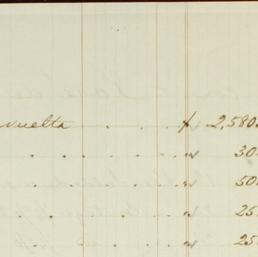 vuelta . . . $ 2,580
. . . " 30
. . . " 50
. . . " 25
. . . " 25